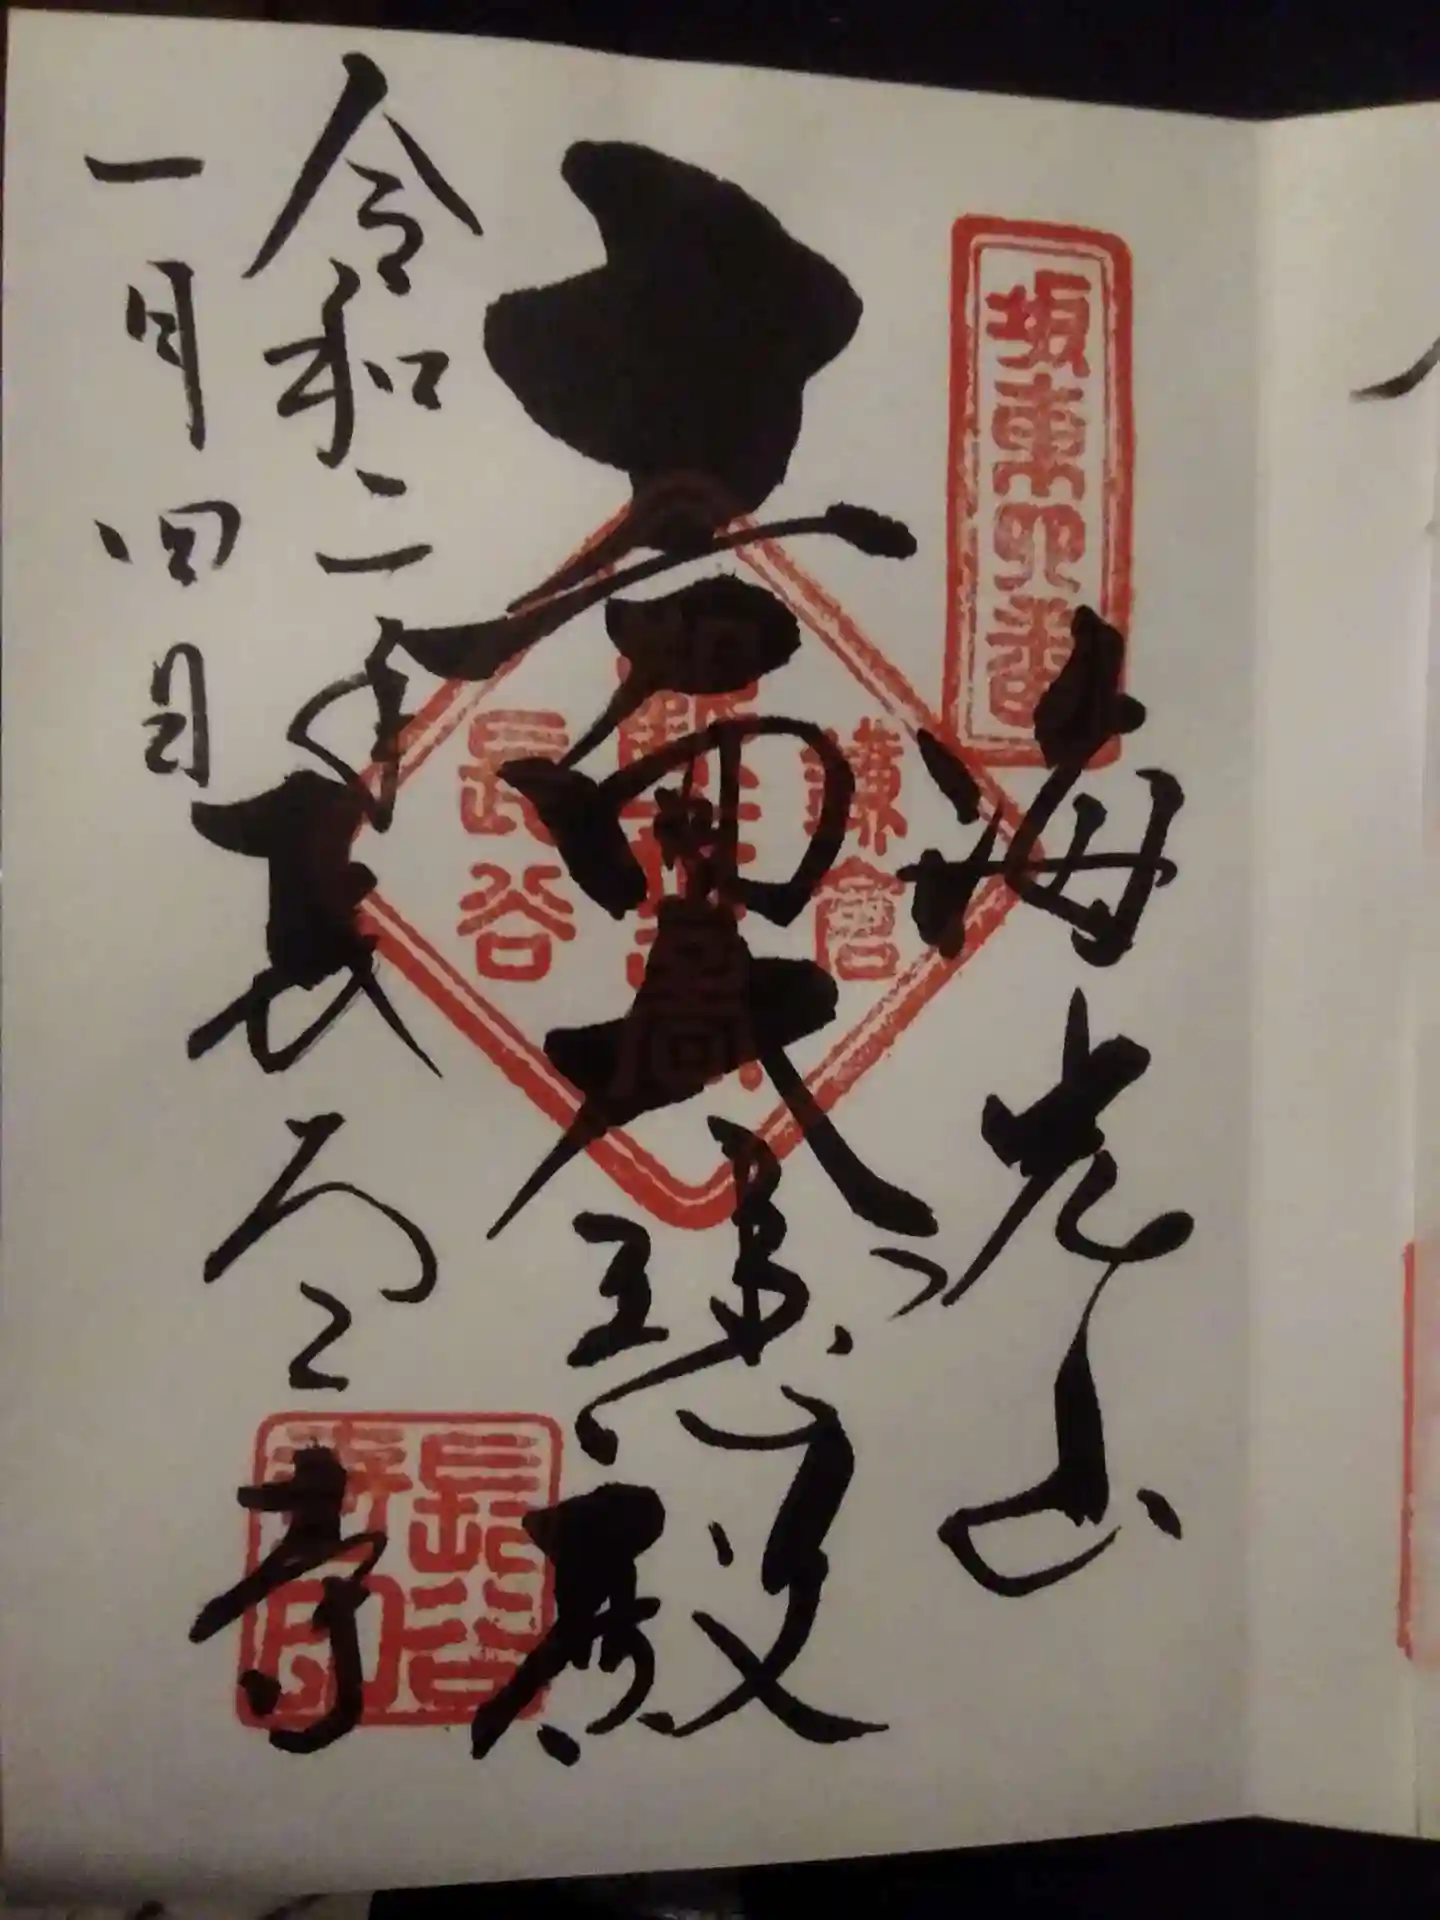 坂東四番
海光山
十一面大悲殿
鎌倉
長谷
長谷寺
長谷寺印
令和二年
一月四日